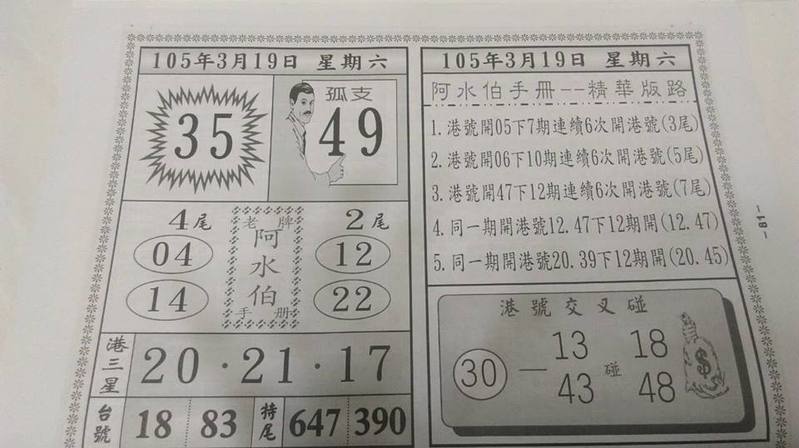 105年3月19日 星期六
35
孤支
49
4尾
04
14
老牌
阿水伯
手册
2尾
12
22
港三星
20·21·17
台號
18 83
特尾
647 390
105年3月19日 星期六
阿水伯手冊--精華版路
1.港號開05下7期連續6次開港號(3尾)
2.港號開06下10期連續6次開港號(5尾)
3.港號開47下12期連續6次開港號(7尾)
4.同一期開港號12.47下12期開(12.47)
5.同一期開港號20.39下12期開(20.45)
港號交叉碰
13 18
30 — 碰
43 48
$
-61-